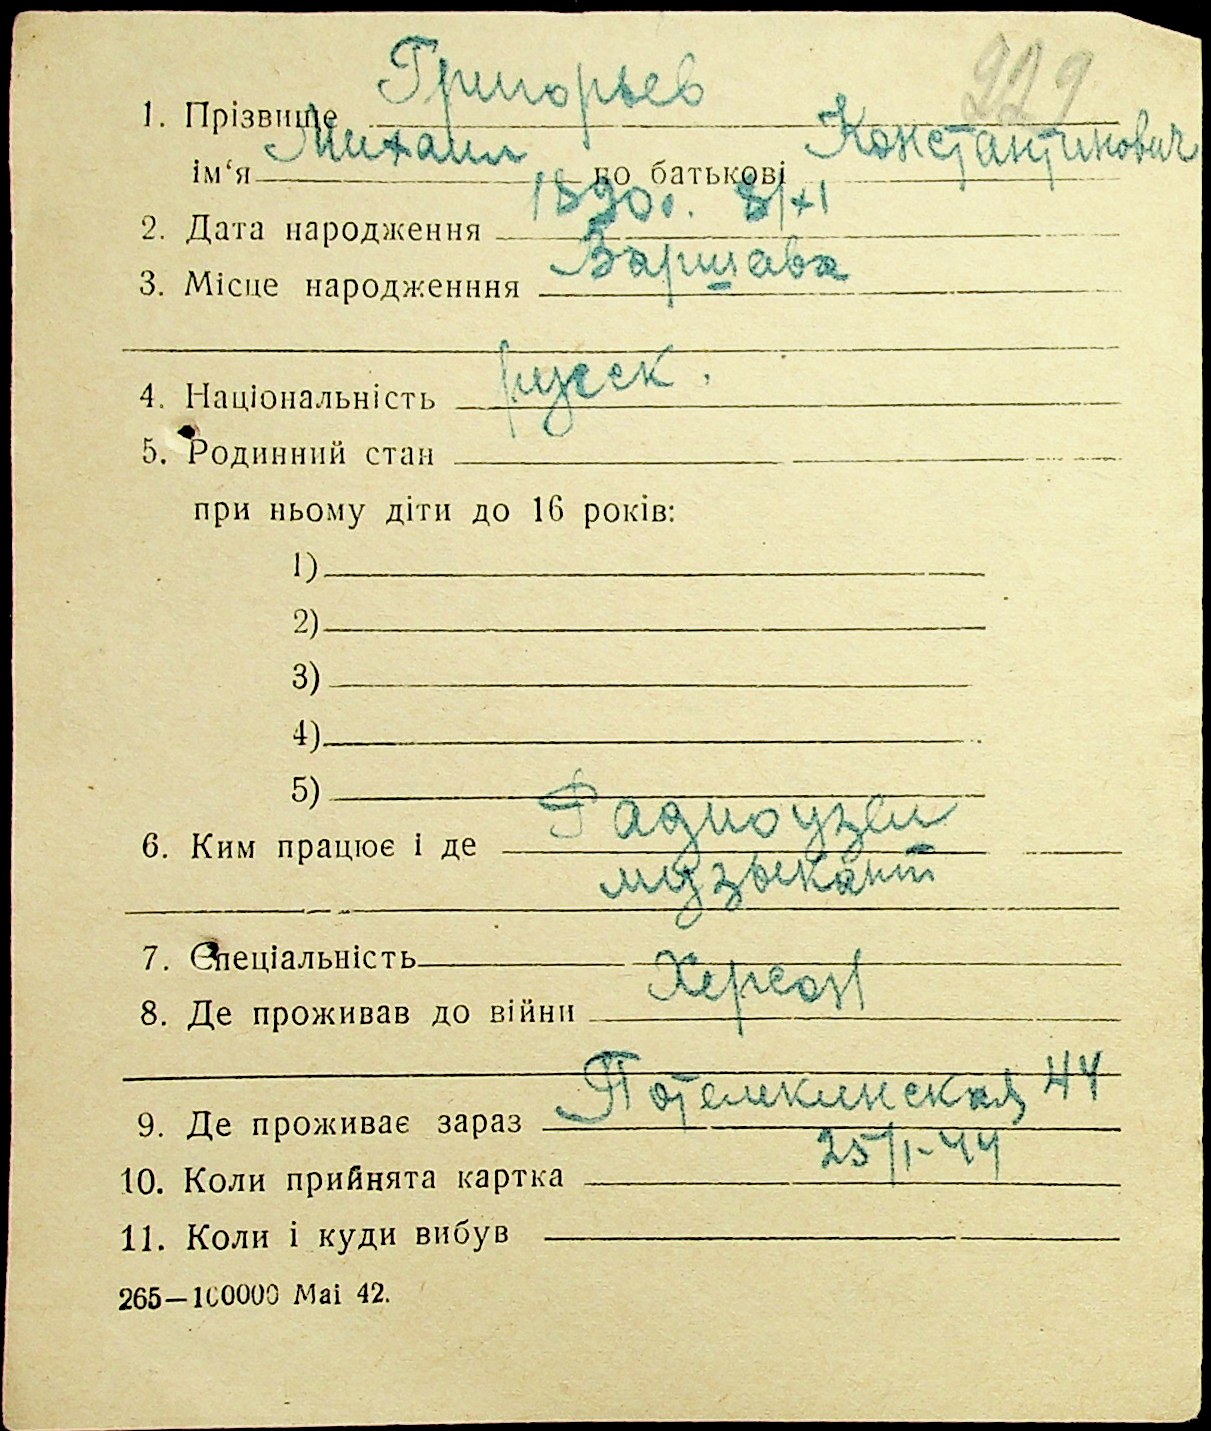 229
Григорьев
1. Прізвище
Михаил Константинович
ім‘я по батькові
1890г. 8/XI
2. Дата народження
Варшава
3. Місце народженння
русск.
4. Національність
5. Родинний стан
при ньому діти до 16 років:
1)
2)
3)
4)
5)
Радиоузел
6. Ким працює і де
музыкант
7. Спеціальність
Херсон
8. Де проживав до війни
Потемкинская 44
9. Де проживає зараз
25/I-44
10. Коли прийнята картка
11. Коли і куди вибув
265—100000 Маі 42.